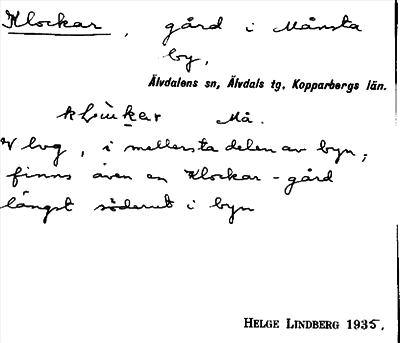 Klockar, gård i Månsta
by,
Älvdalens sn, Älvdals tg, Kopparbergs län.
Må.
V bvg, i mellersta delen av byn;
finns även en Klockar-gård
längst söderut i byn
HELGE LINDBERG 1935.